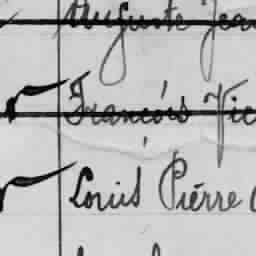 Auguste Jean
François Vic
Louis Pierre